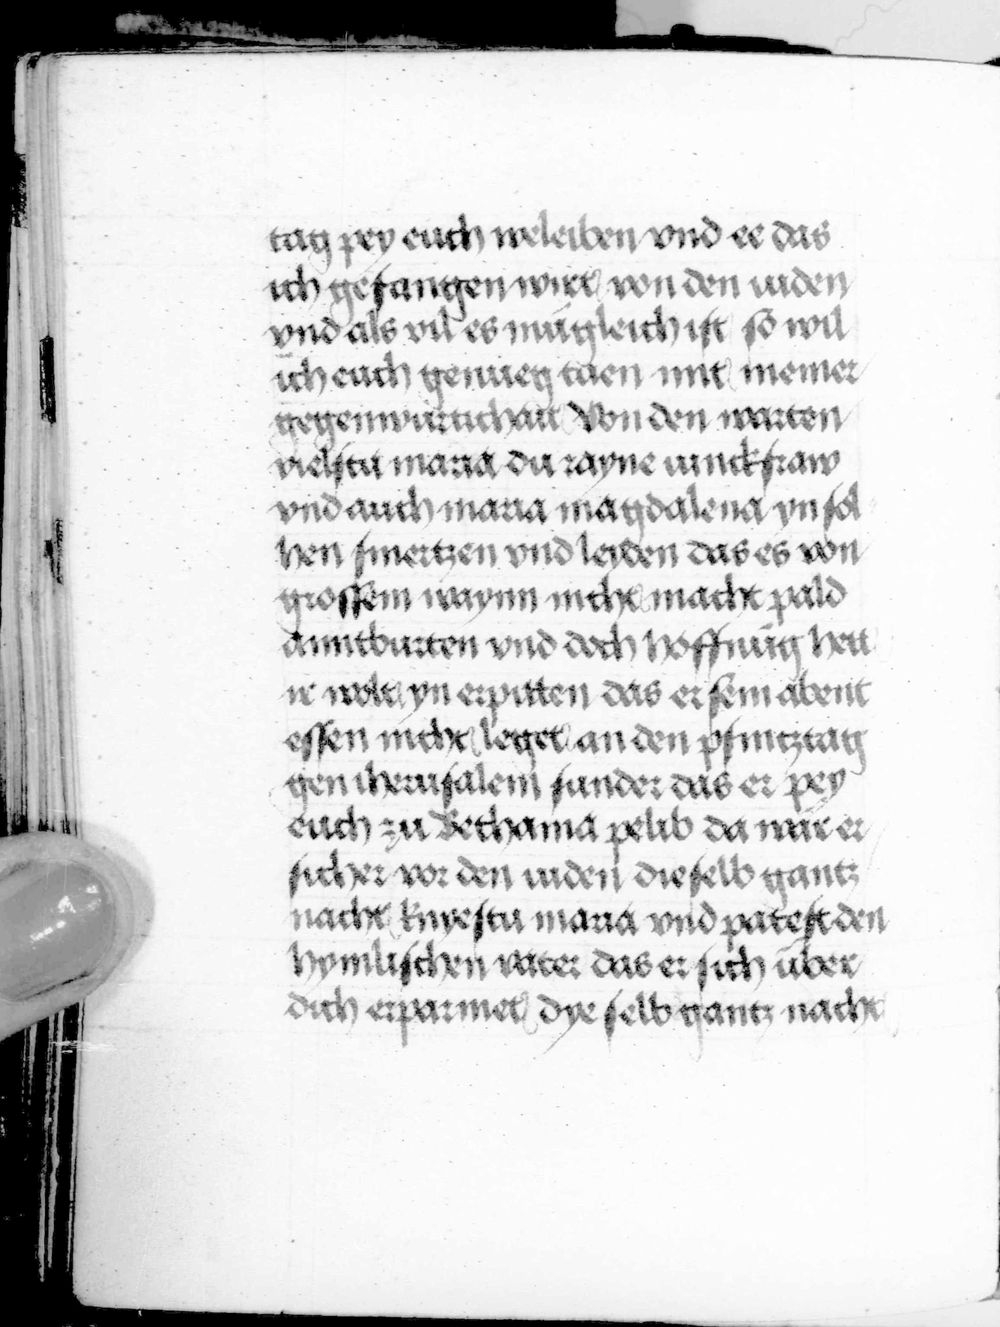 tag pey euch weleiben vnd ee das
ich gefangen wirt von den iuden
vnd als vil es mügleich ist so wil
ich euch genueg tuen mit meiner
gegenwurtichait Von den warten
vielstu maria du rayne iunckfraw
vnd auch maria magdalena yn sol
hen smertzen vnd leyden das es von
grossem waynn nicht macht pald
anntburten vnd doch hoffnūg hett
ir wolt yn erpitten das er sein abent
essen nicht leget an den pfintztag
gen iherusalem sunder das er pey
euch zu Bethania pelib da war er
sicher vor den iuden dieselb gantz
nacht knyestu maria vnd patest den
hymlischen vater das er sich über
dich erparmet dye selb gantz nacht